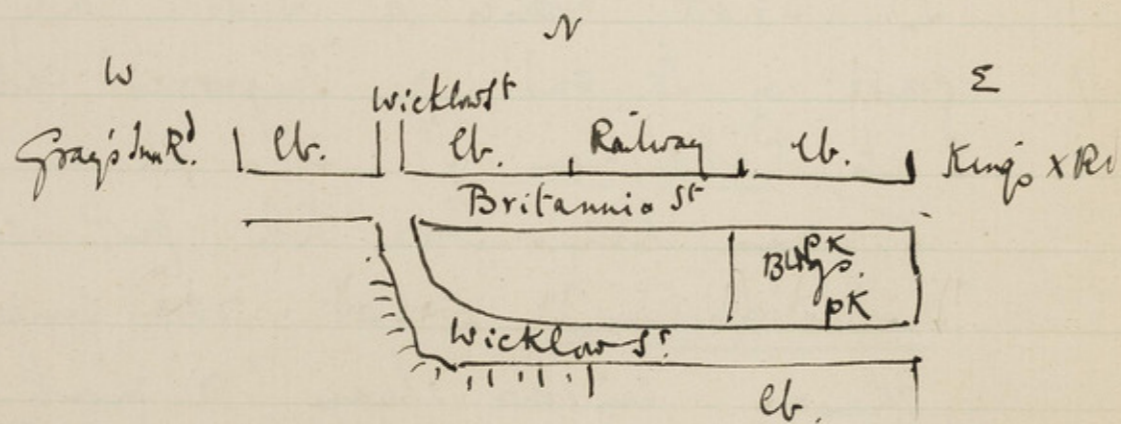 N
W
E
Wicklow St
Gray's Inn Rd.
lb.
lb.
Railway
lb.
King's X Rd
Britannia St
Bldgs.
pK
pK
Wicklow St.
lb.